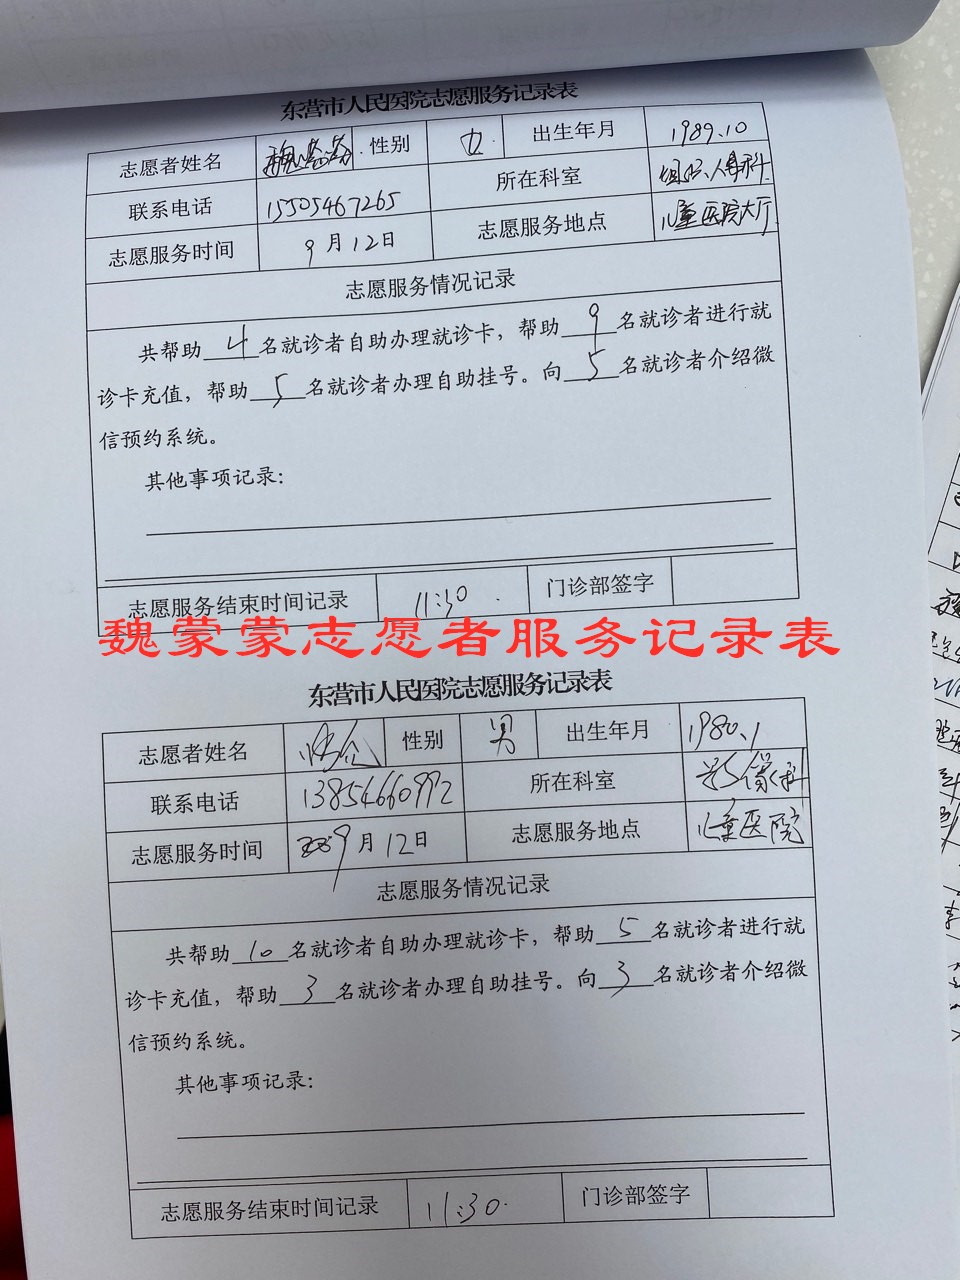 东营市人民医院志愿服务记录表
志愿者姓名 魏蒙蒙 性别 女 出生年月 1989.10
联系电话 15505467265 所在科室 组织人事科
志愿服务时间 9月12日 志愿服务地点 儿童医院大厅
志愿服务情况记录
共帮助4名就诊者自助办理就诊卡，帮助9名就诊者进行就
诊卡充值，帮助5名就诊者办理自助挂号。向5名就诊者介绍微
信预约系统。
其他事项记录：
志愿服务结束时间记录 11:30 门诊部签字
魏蒙蒙志愿者服务记录表
东营市人民医院志愿服务记录表
志愿者姓名 性别 男 出生年月 1980.1
联系电话 13854660992 所在科室 影像科
志愿服务时间 9月12日 志愿服务地点 儿童医院
志愿服务情况记录
共帮助10名就诊者自助办理就诊卡，帮助5名就诊者进行就
诊卡充值，帮助3名就诊者办理自助挂号。向3名就诊者介绍微
信预约系统。
其他事项记录：
志愿服务结束时间记录 11:30. 门诊部签字